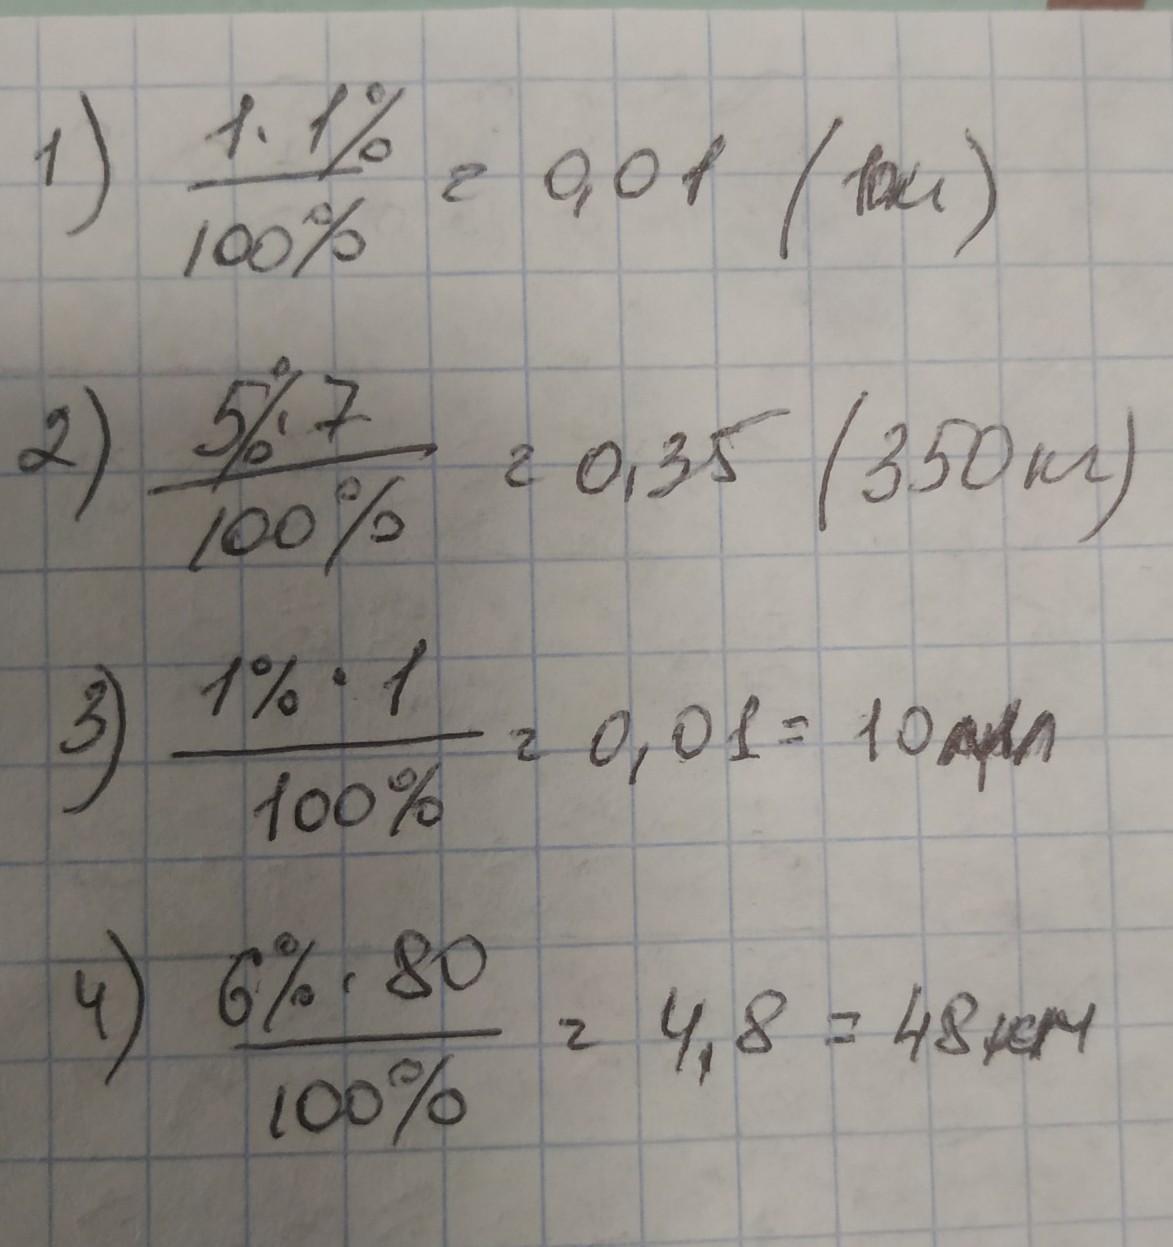 1) 1 · 1% / 100% = 0,01 (
2) 5% · 7 / 100% = 0,35 (350 кг)
3) 1% · 1 / 100% = 0,01 = 10
4) 6% · 80 / 100% = 4,8 = 48